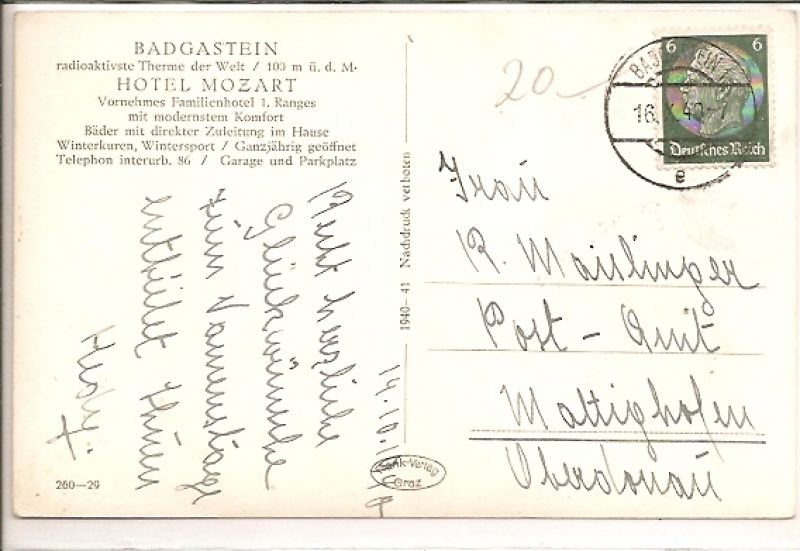 BADGASTEIN
radioaktivste Therme der Welt / 100 m ü. d. M.
HOTEL MOZART
Vornehmes Familienhotel 1. Ranges
mit modernstem Komfort
Bäder mit direkter Zuleitung im Hause
Winterkuren, Wintersport / Ganzjährig geöffnet
Telephon interurb. 86 / Garage und Parkplatz
14.10.
Recht herzliche
Glückwünsche
zum Namenstage
entbietet Ihnen
Hedy.
260—29
1940—41 Nachdruck verboten
Bank-Verlag
Graz
20.—
6 6
Deutsches Reich
16.
e
Frau
R. Maislinger
Post - Amt
Mattighofen
Oberdonau